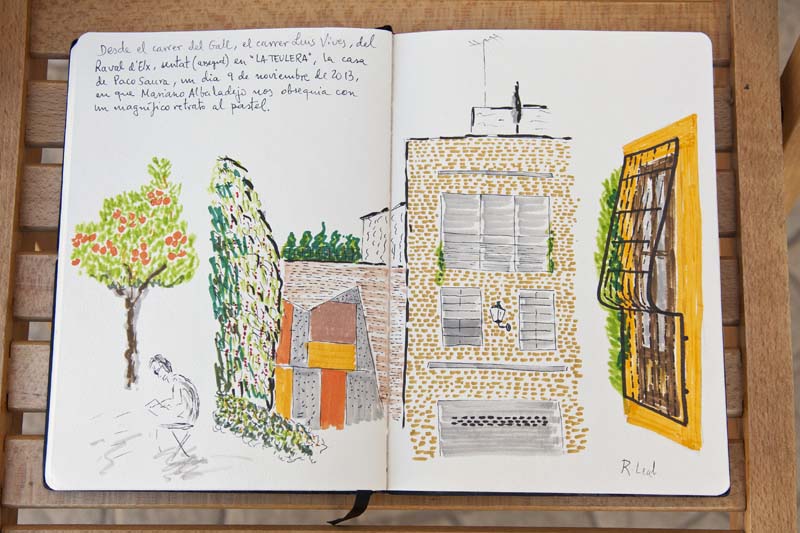 Desde el carrer del Gall, el carrer Luis Vives, del
Raval d'Elx, sentat (assegut) en "LA TEULERA", la casa
de Paco Saura, un dia 9 de noviembre de 2013,
en que Mariano Albaladejo nos obsequia con
un magnífico retrato al pastel.
R. Leal